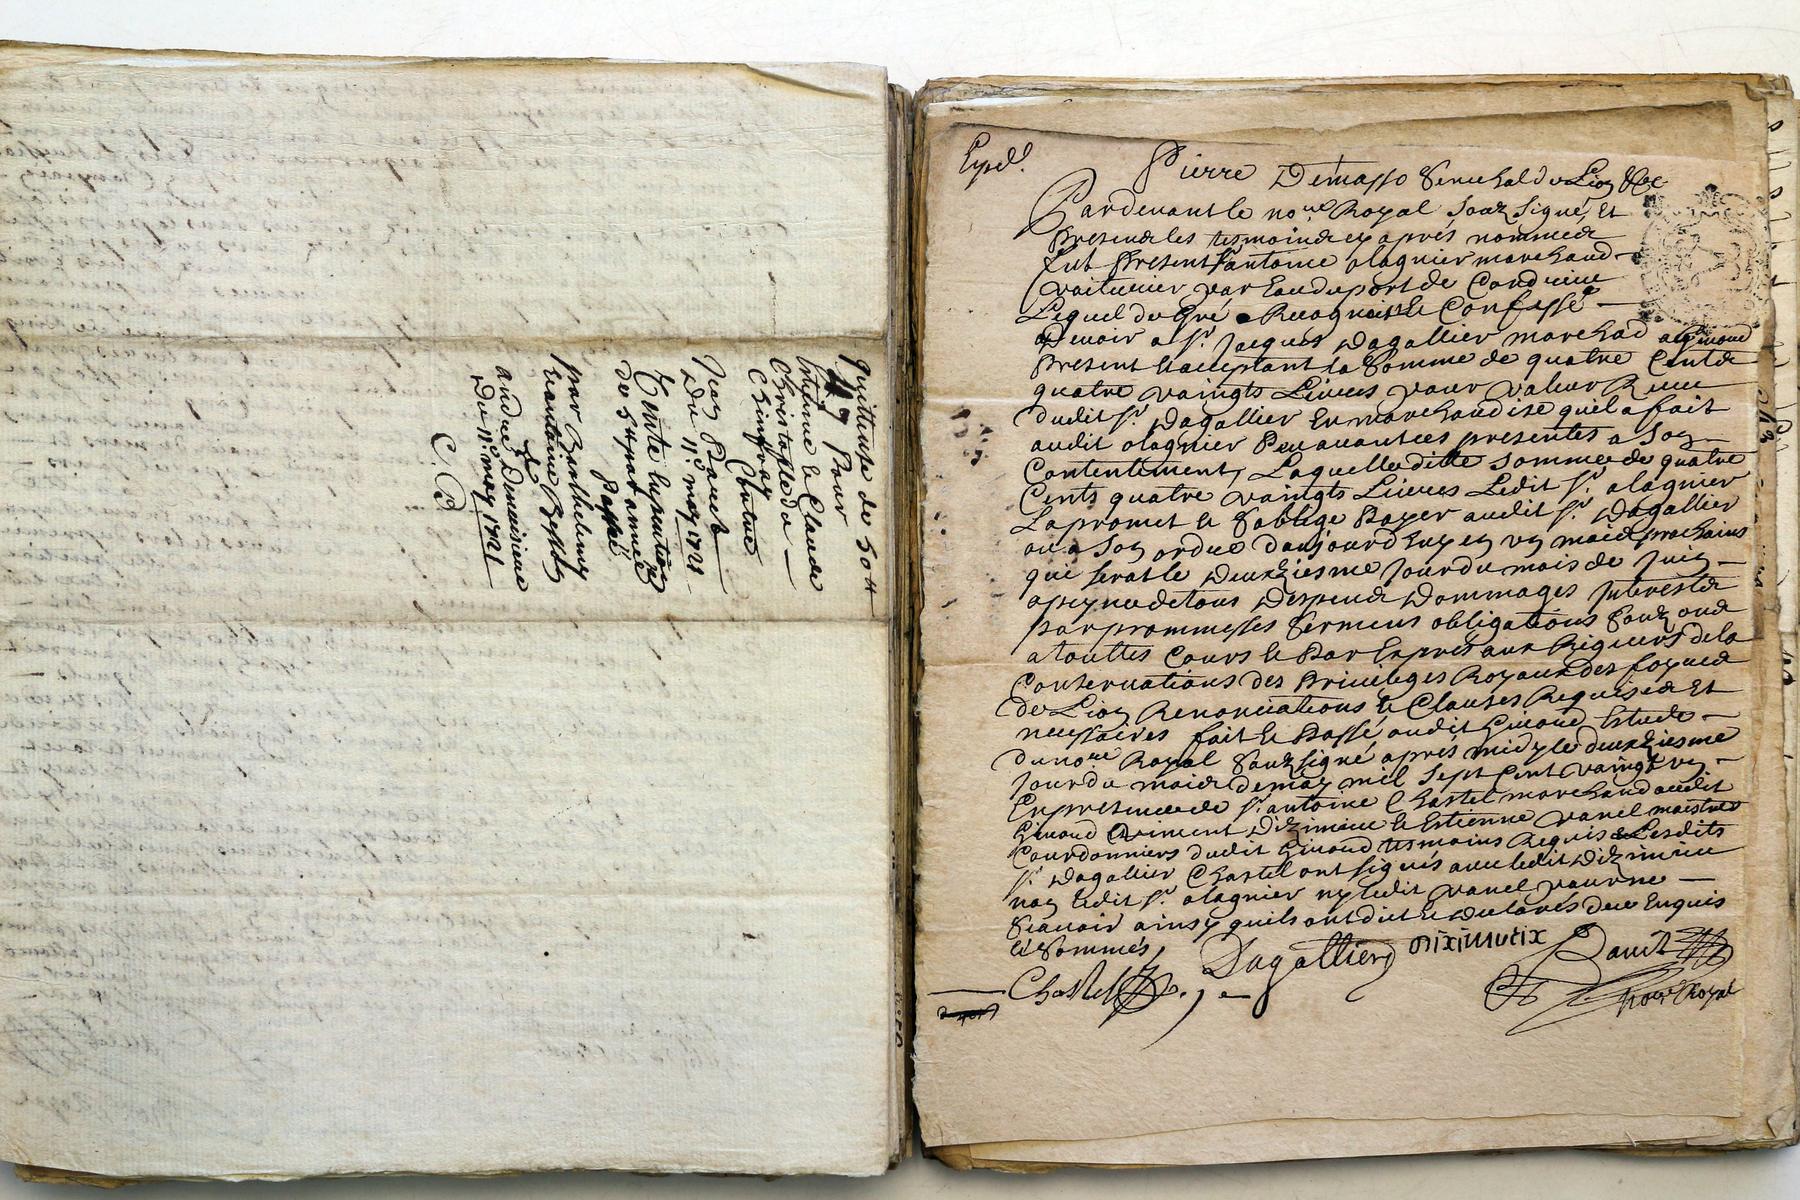 quittance de 50 tt
Pour
Estienne et Claude
Christofle da
Chinfray
Contre
Jean Pauet
Du 11e. may 1721
par Barthelemy
andre Demoisiaue
Du 11e. may 1721
C. B.
Exped.
Pierre Demasso Senechal du Lion &c
Pardeuant le nore. Royal Souz Signé, Et
Presents les tesmoins cy aprés nommes
fut Present Sr antoine olagnier marchand
voiturier par eau du port de Condrieu
Lequel de Gré a Recognu et Confessé
Deuoir a Sr. Jacques Dagallier marchad a Giuord
Present et acceptant la Somme de quatre Cents
quatre vaingts Liures pour valeur Receu
dudit Sr Dagallier En marchandise quil a fait
audit olagnier Peu auant ces presentes a Son
Contentement, Laquelle ditte Somme de quatre
Cents quatre vaingts Liures Ledit Sr. olagnier
La promet et Soblige Payer audit Sr. Dagallier
ou a Son ordre daujourdhuy en vn mois prochains
qui serat le Deuxziesme Jour du mois de Juin
a peyne de tous Despends Dommages Interests
Par prommesses Sermens obligations Souz ons
a touttes Cours et Par Exprés aux Rigueurs de la
Conseruations des Priuileges Royaux des foyres
de Lion Renonciations et Clauses Requises Et
necessaires fait et Passé audit Giuord Estude
du nore Royal Souz signé aprés midy le deuxziesme
Jour du mois de may mil Sept Cent vaingt vn
En presence de Sr. antoine Chastel marchand audit
Giuord Diximieu et Estienne vanel maistres
Courdonniers dudit Giuord tesmoins Requis Lesdits
Sr. Dagallier Chastel ont signés auec ledit Diximieu
non Ledit Sr. olagnier ny ledit vanel pour ne
Scauoir ainsy quils ont dict et Declarés de ce Enquis
et Sommés,
Chastel Dagallier Diximieux
nore. Royal